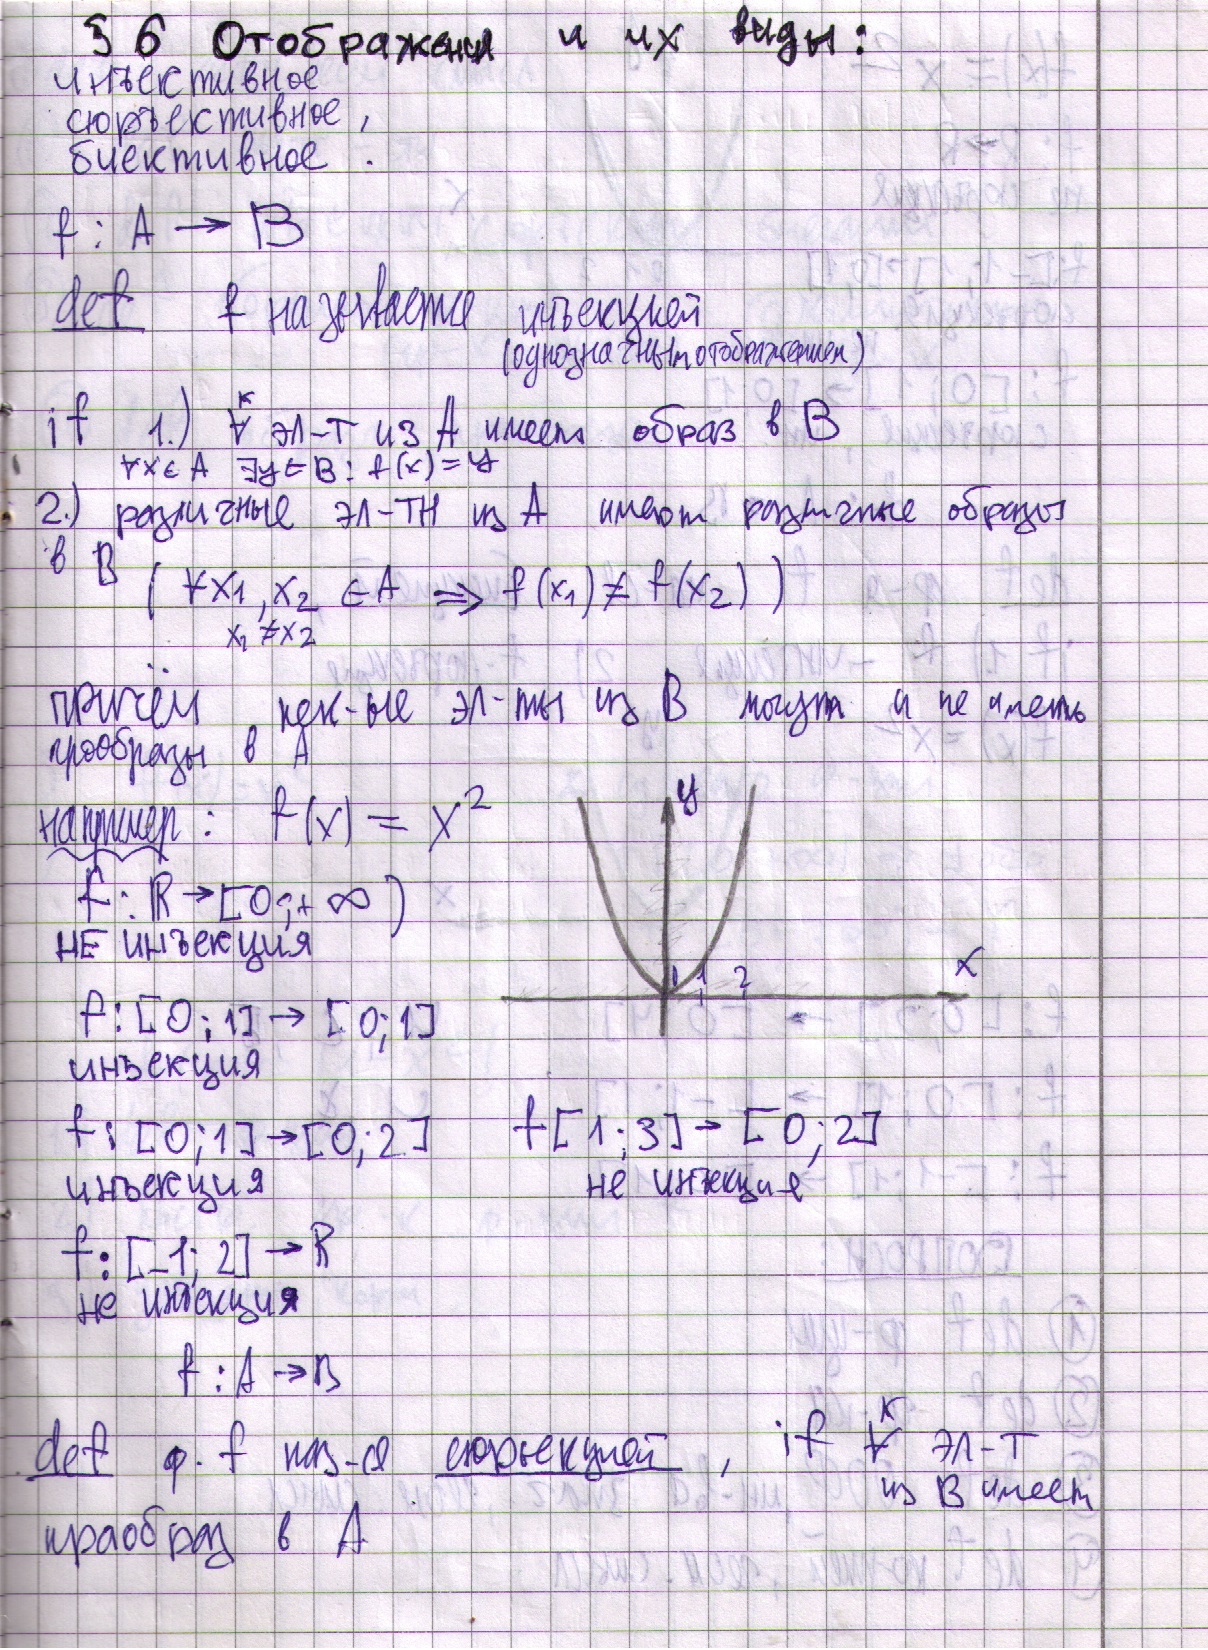 §6 Отображения и их виды:
инъективное
сюръективное,
биективное.
f : A → B
def f называется инъекцией
(однозначным отображением)
if 1.) ∀к эл-т из A имеет образ в B
∀x∈A ∃y∈B: f(x)=y
2.) различные эл-ты из A имеют различные образы
в B ( ∀x₁,x₂ ∈A ⇒ f(x₁)≠f(x₂) )
x₁≠x₂
причём нек-ые эл-ты из B могут и не иметь
прообразы в A
например: f(x) = x²
y
f : R → [0;+∞)
НЕ инъекция
1 2 x
f : [0;1] → [0;1]
инъекция
f : [0;1] → [0;2] f [1;3] → [0;2]
инъекция не инъекция
f : [-1; 2] → R
не инъекция
f : A → B
def ф. f наз-ся сюръекцией, if ∀к эл-т
из B имеет
праобраз в A